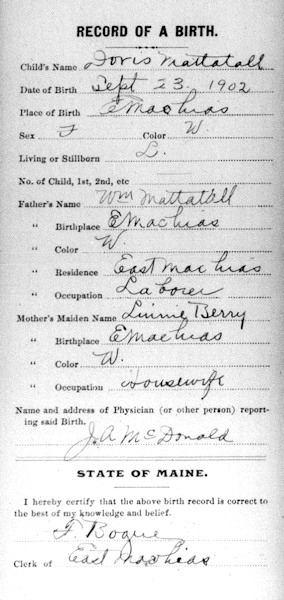 RECORD OF A BIRTH.
Child's Name Doris Mattatall
Date of Birth Sept 23, 1902
Place of Birth E Machias
Sex F Color W.
Living or Stillborn L.
No. of Child, 1st, 2nd, etc
Father's Name Wm Mattatall
" Birthplace E Machias
" Color W.
" Residence East Machias
" Occupation Laborer
Mother's Maiden Name Linnie Berry
" Birthplace E Machias
" Color W.
" Occupation Housewife
Name and address of Physician (or other person) report-
ing said Birth.
J. A McDonald
STATE OF MAINE.
I hereby certify that the above birth record is correct to
the best of my knowledge and belief.
F. Bogue
Clerk of East Machias